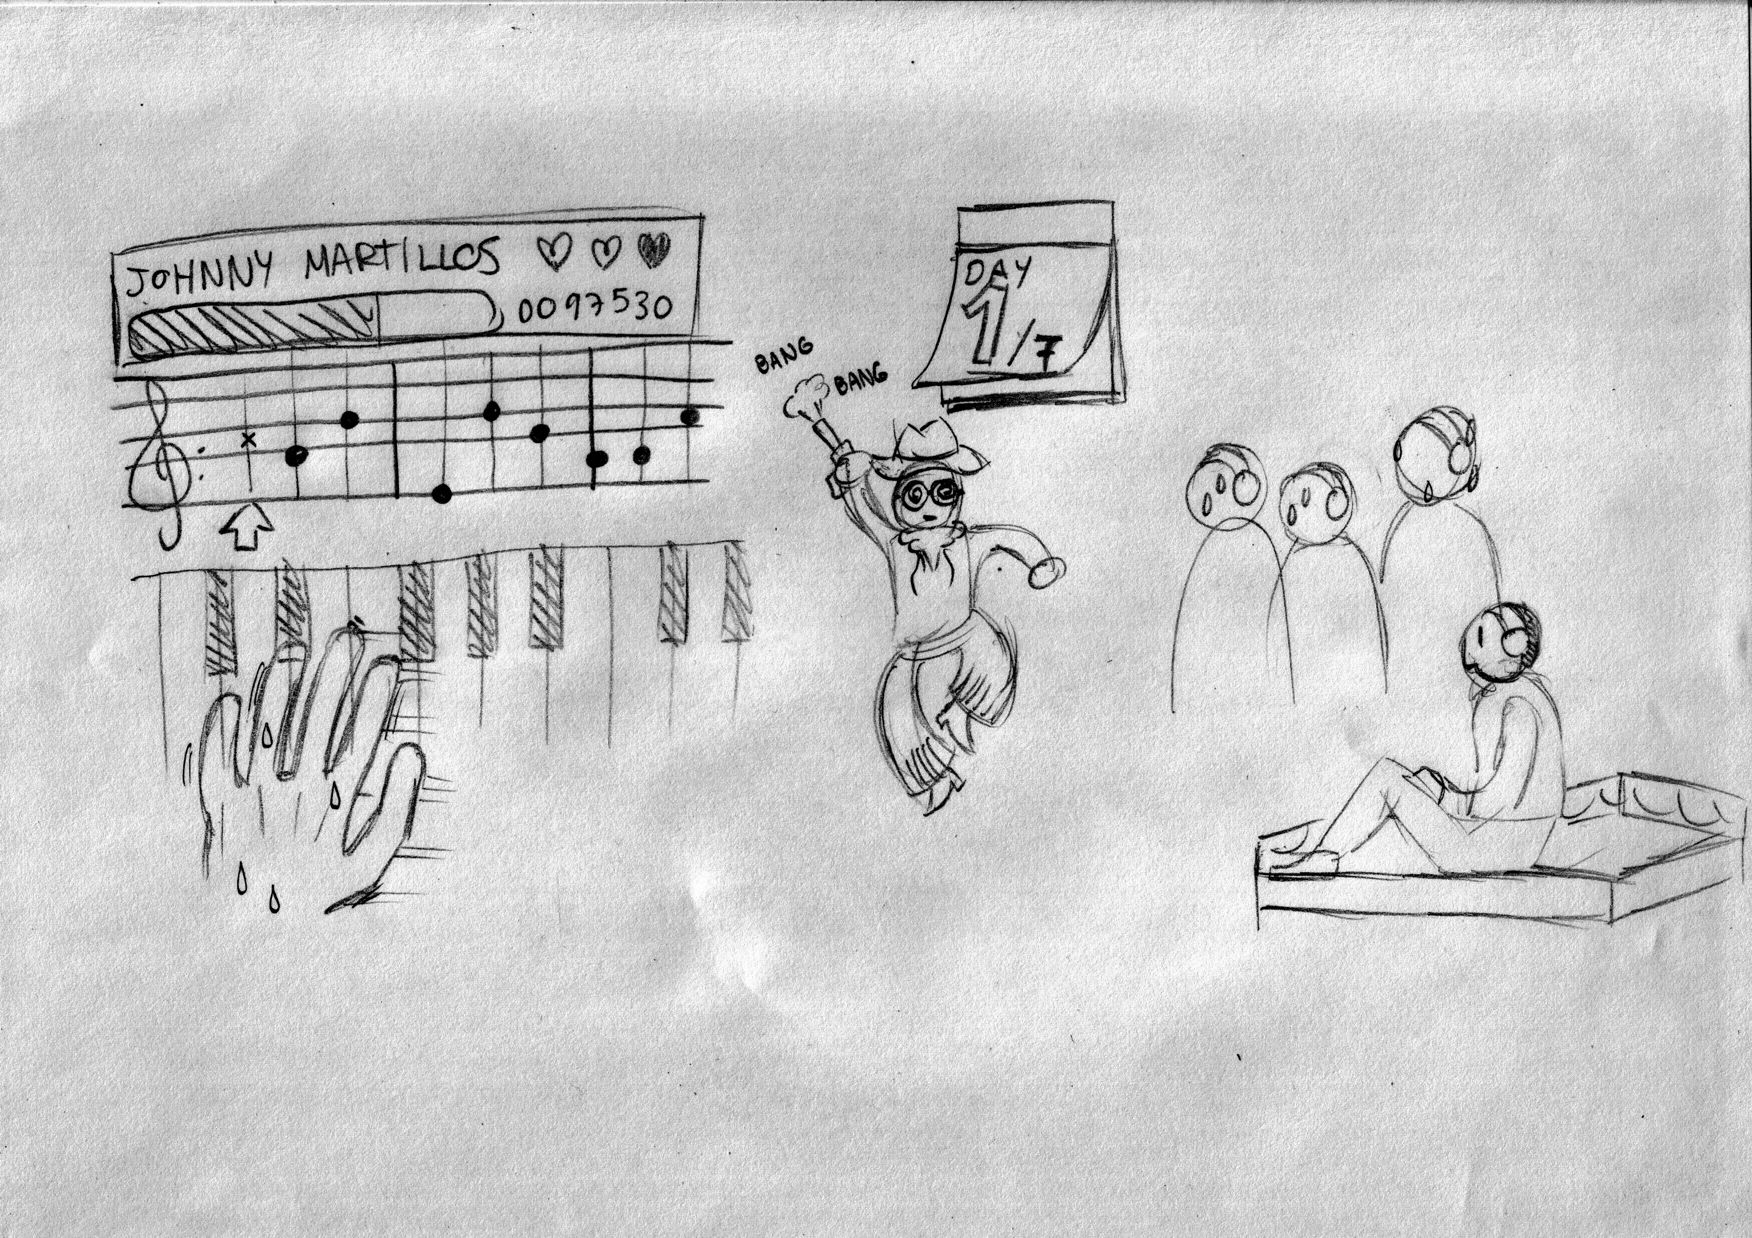 JOHNNY MARTILLOS
0097530
BANG
BANG
DAY
1/7